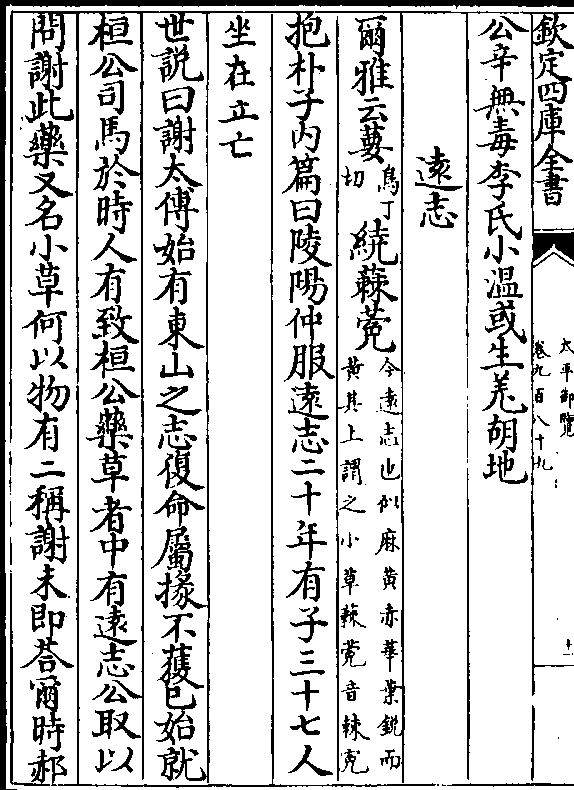 欽定四庫全書
太平御覽
卷九百八十九
公辛無毒李氏小溫或生羌胡地
遠志
爾雅云葽烏丁切繞蕀蒬今逺志也似麻黄赤華葉銳而黃其上謂之小草蕀蒬音棘寃
抱朴子内篇曰陵陽仲服遠志二十年有子三十七人
坐在立亡
世説曰謝太傅始有東山之志復命屬掾不獲已始就
桓公司馬於時人有致桓公藥草者中有遠志公取以
問謝此藥又名小草何以物有二稱謝未即荅爾時郝